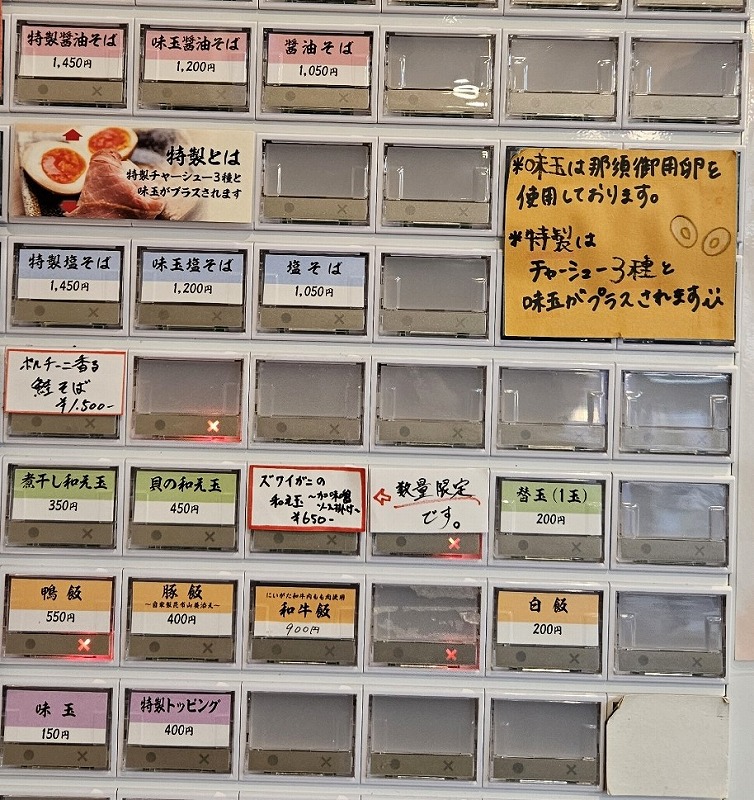 特製醤油そば
1,450円
味玉醤油そば
1,200円
醬油そば
1,050円
特製とは
特製チャーシュー3種と
味玉がプラスされます
*味玉は那須御用卵を
使用しております。
*特製は
チャーシュー3種と
味玉がプラスされます
特製塩そば
1,450円
味玉塩そば
1,200円
塩そば
1,050円
ポルチーニ香る
鮭そば
¥1,500-
煮干し和え玉
350円
貝の和え玉
450円
ズワイガニの
和え玉
¥650-
数量限定
です。
替玉(1玉)
200円
鴨飯
550円
豚飯
~自家製昆布山葵添え~
400円
にいがた和牛内もも肉使用
和牛飯
900円
白飯
200円
味玉
150円
特製トッピング
400円